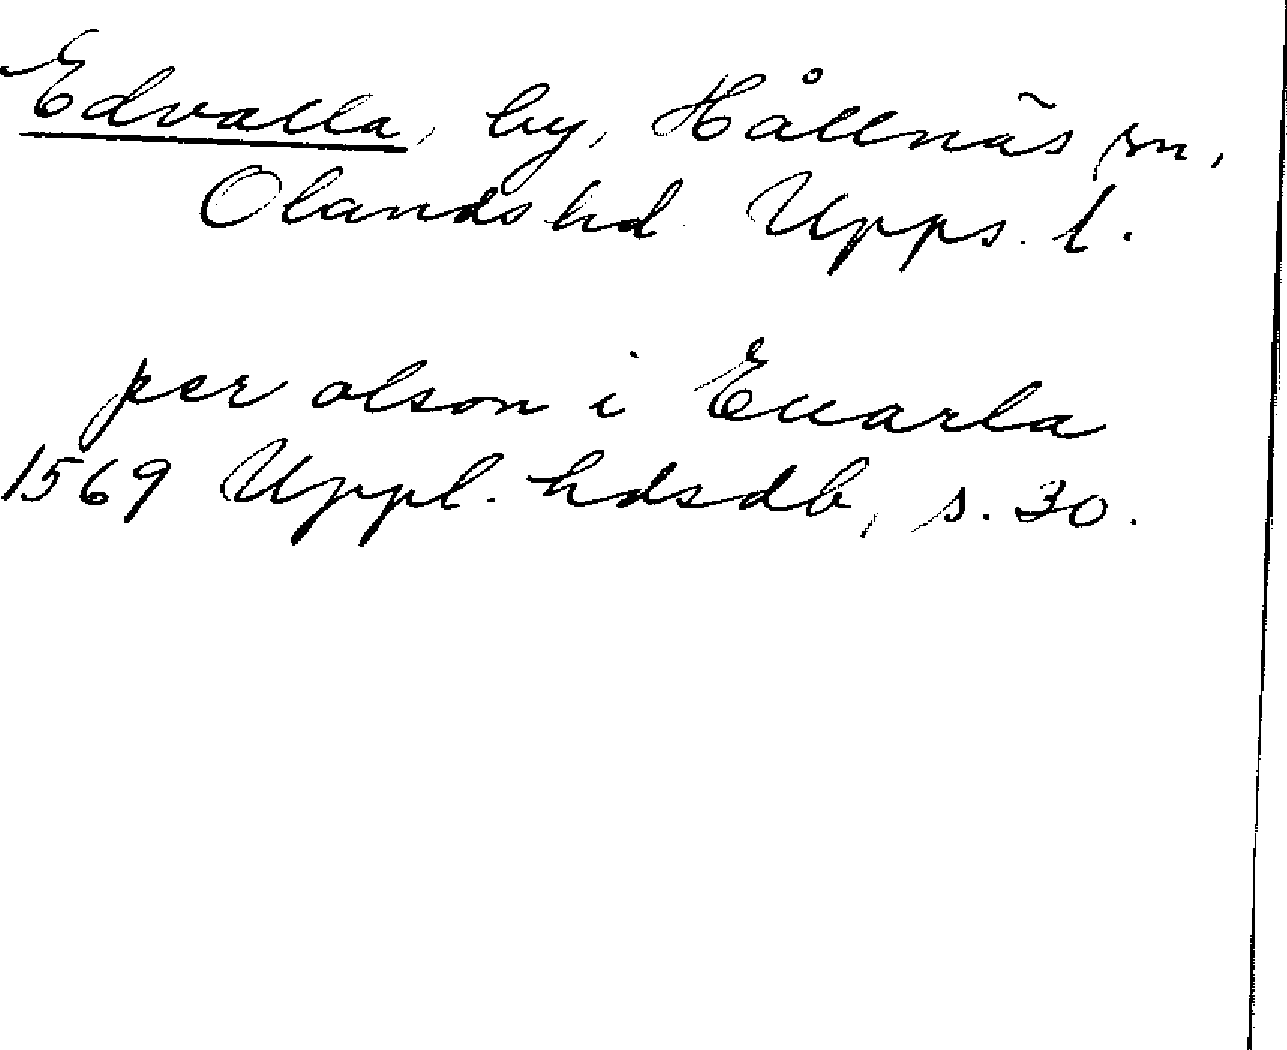 Edvalla, by, Hållnäs sn,
Olands hd. Upps. l.
per olson i Euarla
1569 Uppl. hdsdb, s. 30.